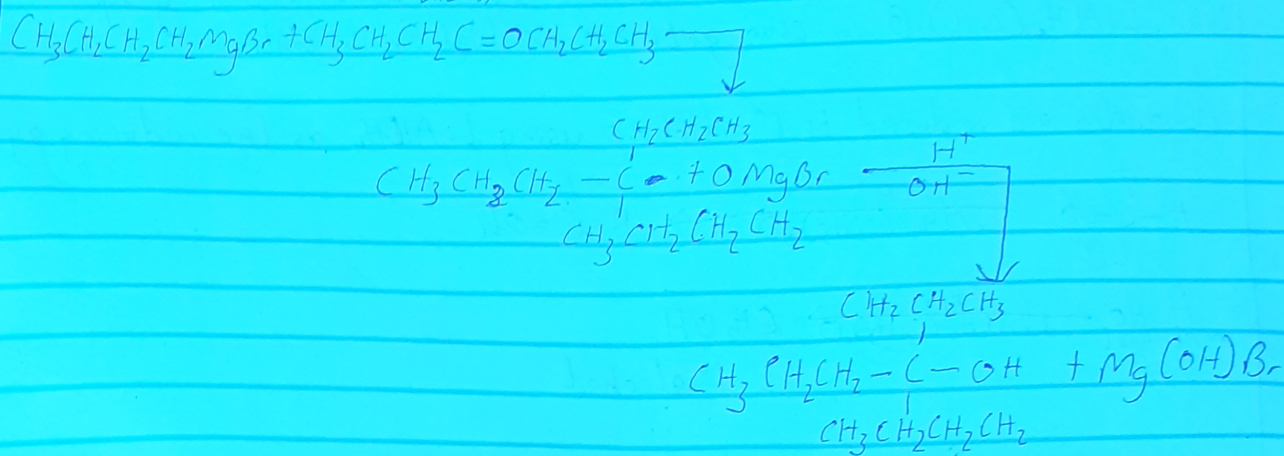 CH₃CH₂CH₂CH₂MgBr + CH₃CH₂CH₂C=OCH₂CH₂CH₃
CH₂CH₂CH₃
CH₃CH₂CH₂ — C - + OMgBr H⁺
OH⁻
CH₃CH₂CH₂CH₂
CH₂CH₂CH₃
CH₃CH₂CH₂ — C — OH + Mg(OH)Br
CH₃CH₂CH₂CH₂